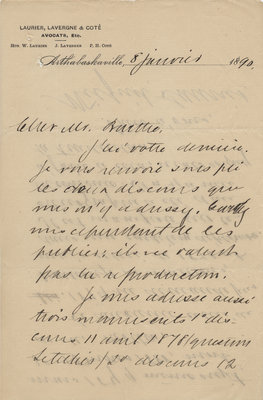 LAURIER, LAVERGNE & COTÉ
AVOCATS, Etc.
HON. W. LAURIER J. LAVERGNE P. H. COTÉ
Arthabaskaville, 8 janvier 1890
Cher Mr. Barthe,
J'ai votre dernière.
Je vous renvoie sous pli
les deux discours que
vous m'y adressez.
cependant de les
publier; ils ne valent
pas la reproduction.
Je vous adresse aussi
trois manuscrits 1° dis-
cours 11 avril 1878 (question
Letellier) 2° discours 12